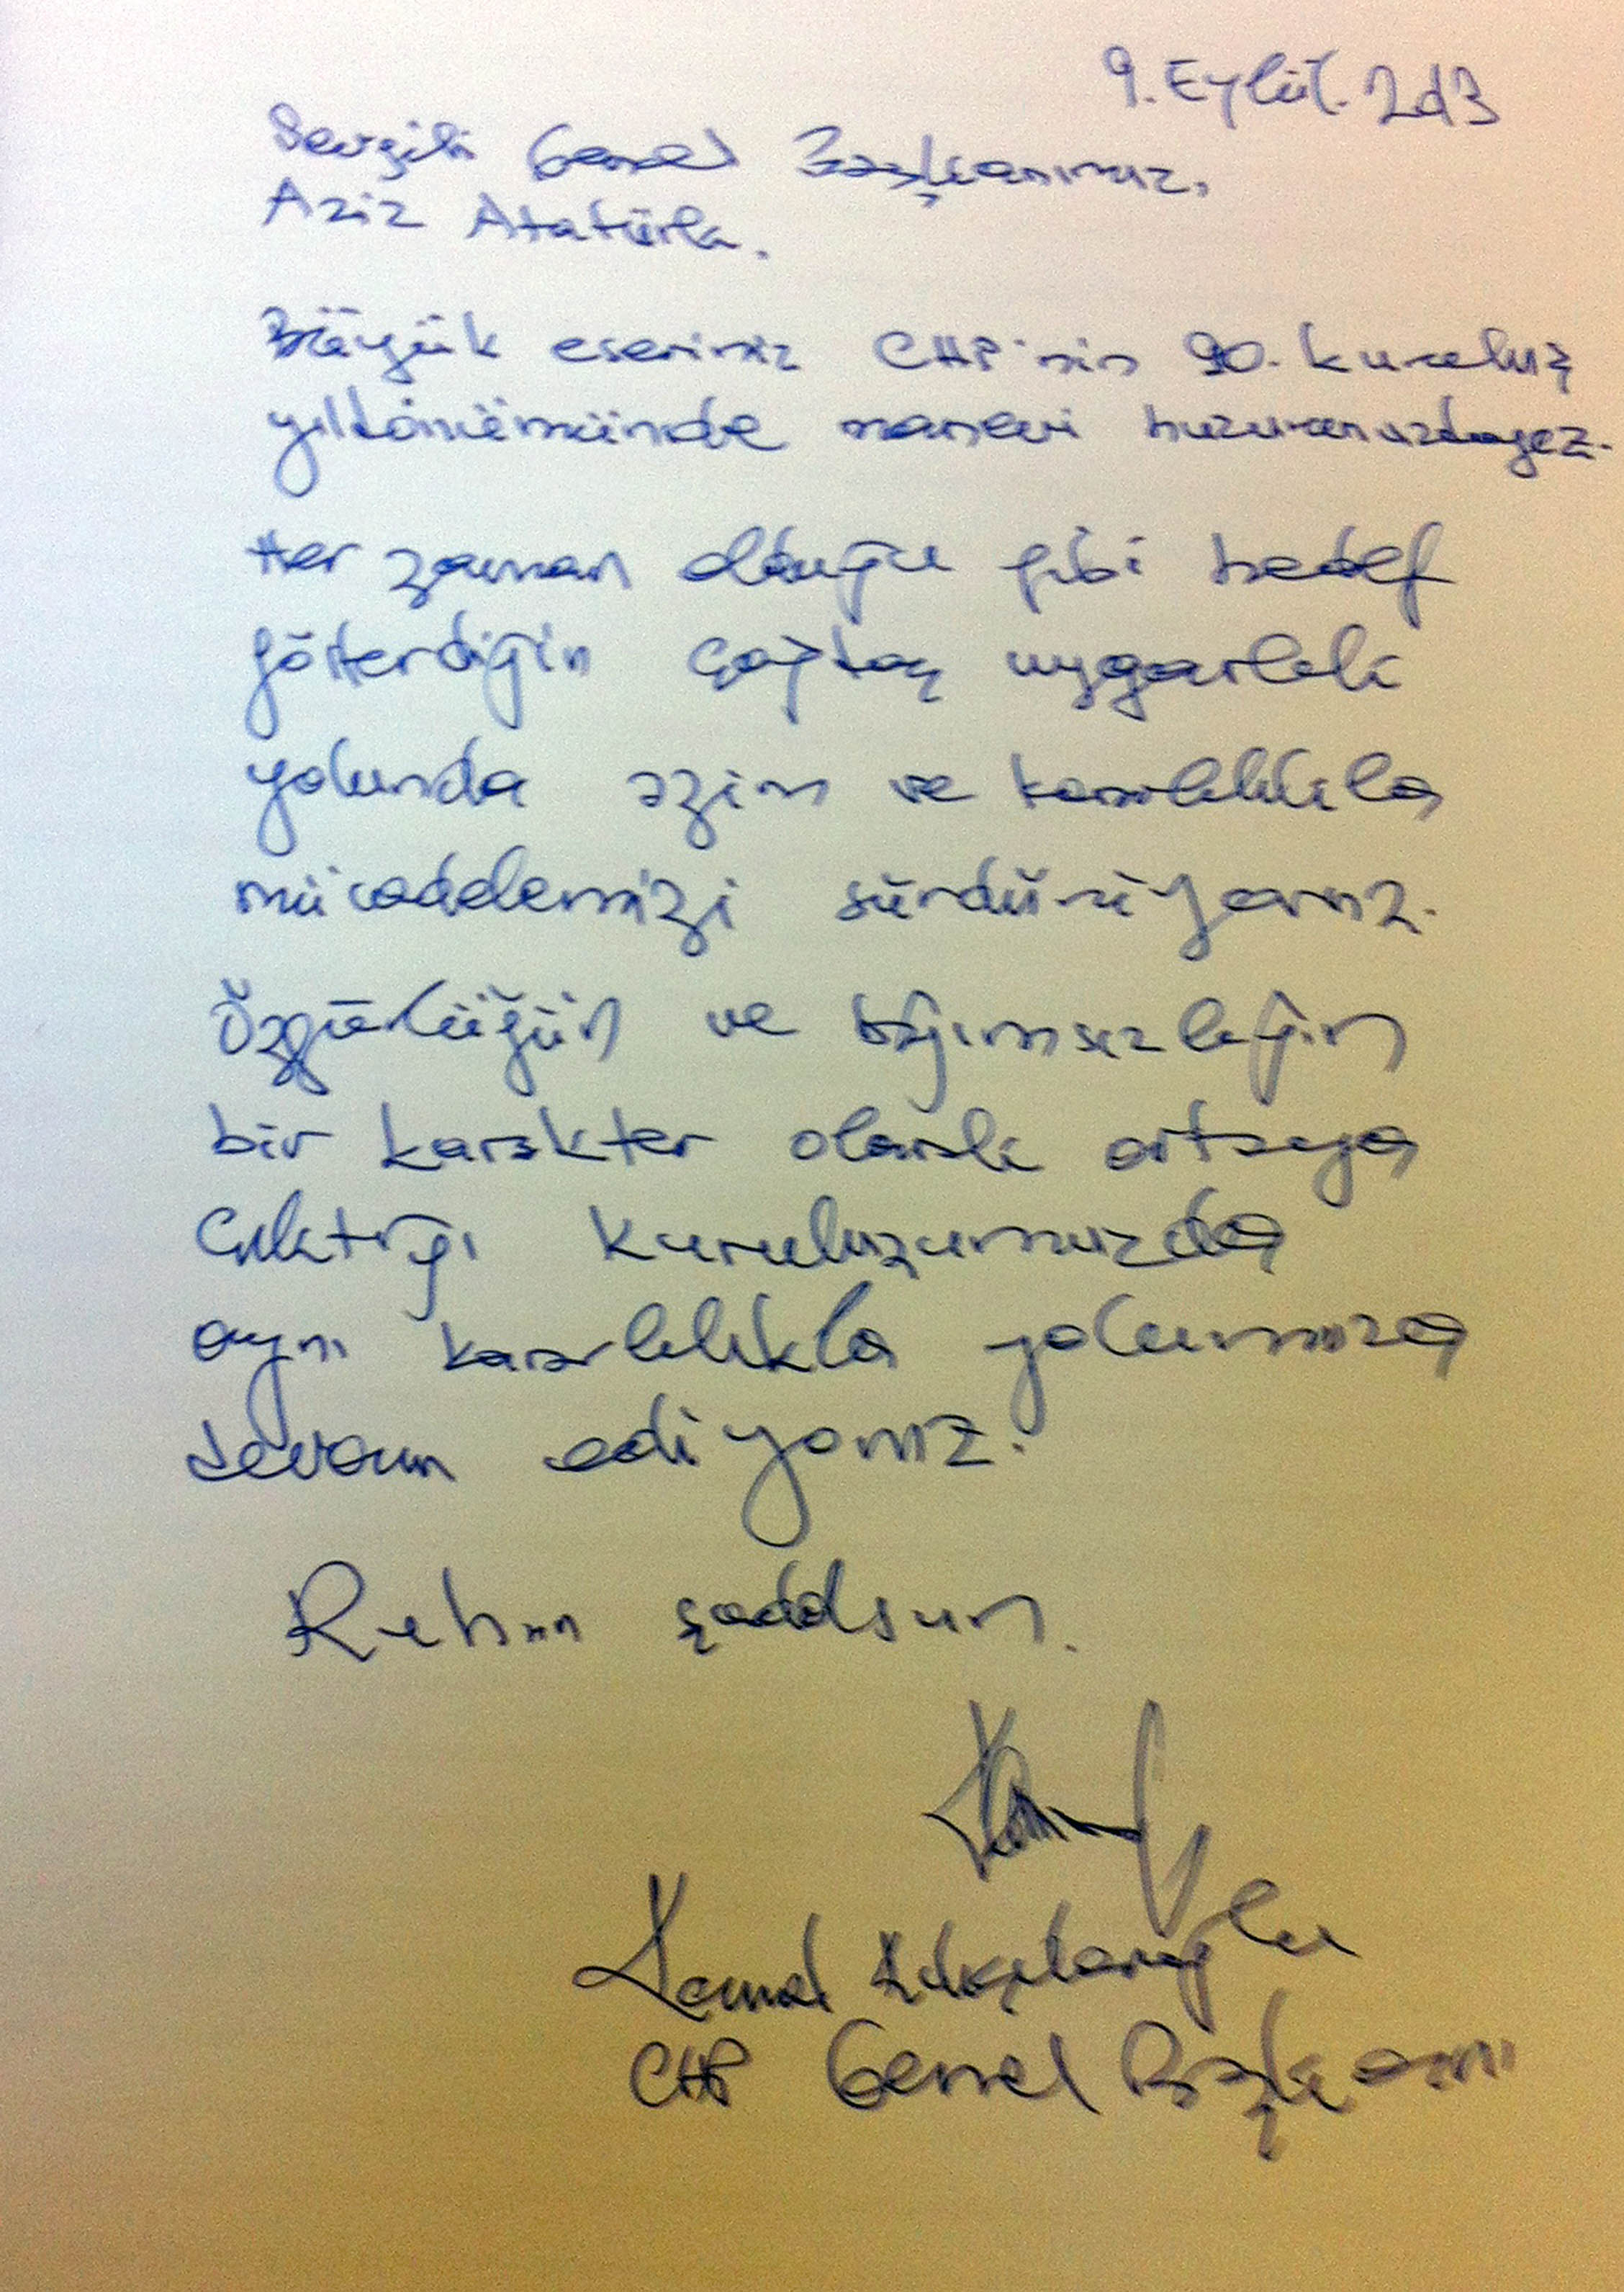 9. Eylül. 2013
Sevgili Genel Başkanımız,
Aziz Atatürk.
Büyük eseriniz CHP'nin 90. kuruluş
yıldönümünde manevi huzurunuzdayız.
Her zaman olduğu gibi hedef
gösterdiğin çağdaş uygarlık
yolunda azim ve kararlılıkla
mücadelemizi sürdürüyoruz.
Özgürlüğün ve bağımsızlığın
bir karakter olarak ortaya
çıktığı kuruluşumuzda
aynı kararlılıkla yolumuza
devam ediyoruz.
Ruhun şadolsun.
Kemal Kılıçdaroğlu
CHP Genel Başkanı